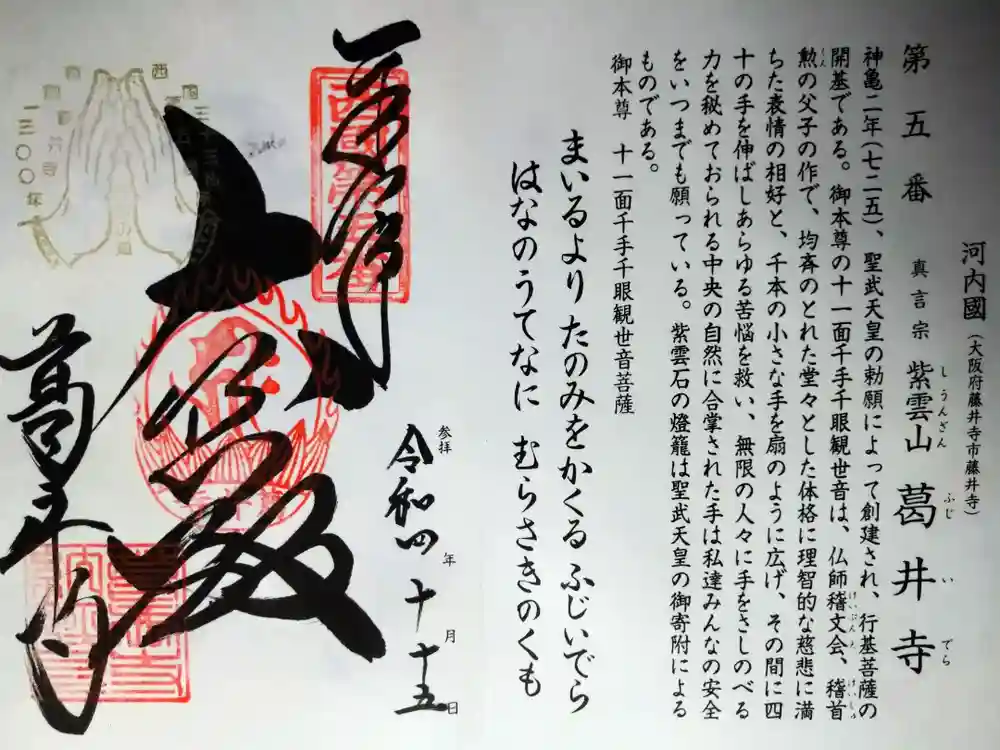 河内國（大阪府藤井寺市藤井寺）
第五番 真言宗 紫雲山 葛井寺
しうんざん ふじいでら
神亀二年（七二五）、聖武天皇の勅願によって創建され、行基菩薩の
開基である。御本尊の十一面千手千眼観世音は、仏師稽文会、稽首
けいぶんえ けいしゅ
勲の父子の作で、均斉のとれた堂々とした体格に理智的な慈悲に満
くん
ちた表情の相好と、千本の小さな手を扇のように広げ、その間に四
十の手を伸ばしあらゆる苦悩を救い、無限の人々に手をさしのべる
力を秘めておられる中央の自然に合掌された手は私達みんなの安全
をいつまでも願っている。紫雲石の燈籠は聖武天皇の御寄附による
ものである。
御本尊 十一面千手千眼観世音菩薩
まいるより たのみをかくる ふじいでら
はなのうてなに むらさきのくも
参拝
令和四年十月十五日
西国第五番
大悲殿
葛井寺
一三〇〇年